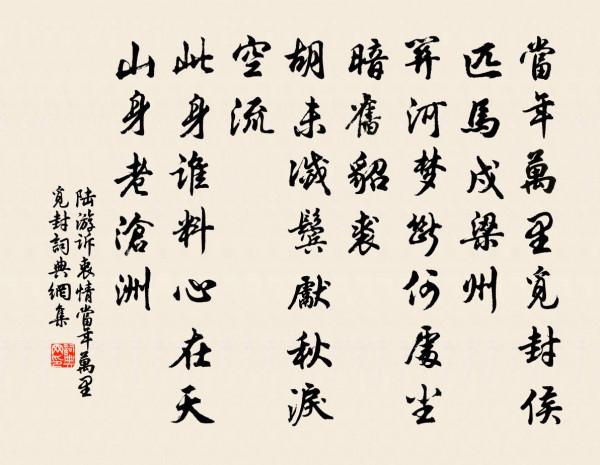 當年萬里覓封侯
匹馬戍梁州
關河梦斷何處尘
暗舊貂裘
胡未滅鬢獻秋淚
空流
此身誰料心在天
山身老滄洲
陸游诉衷情當年萬里
覓封詞典網集